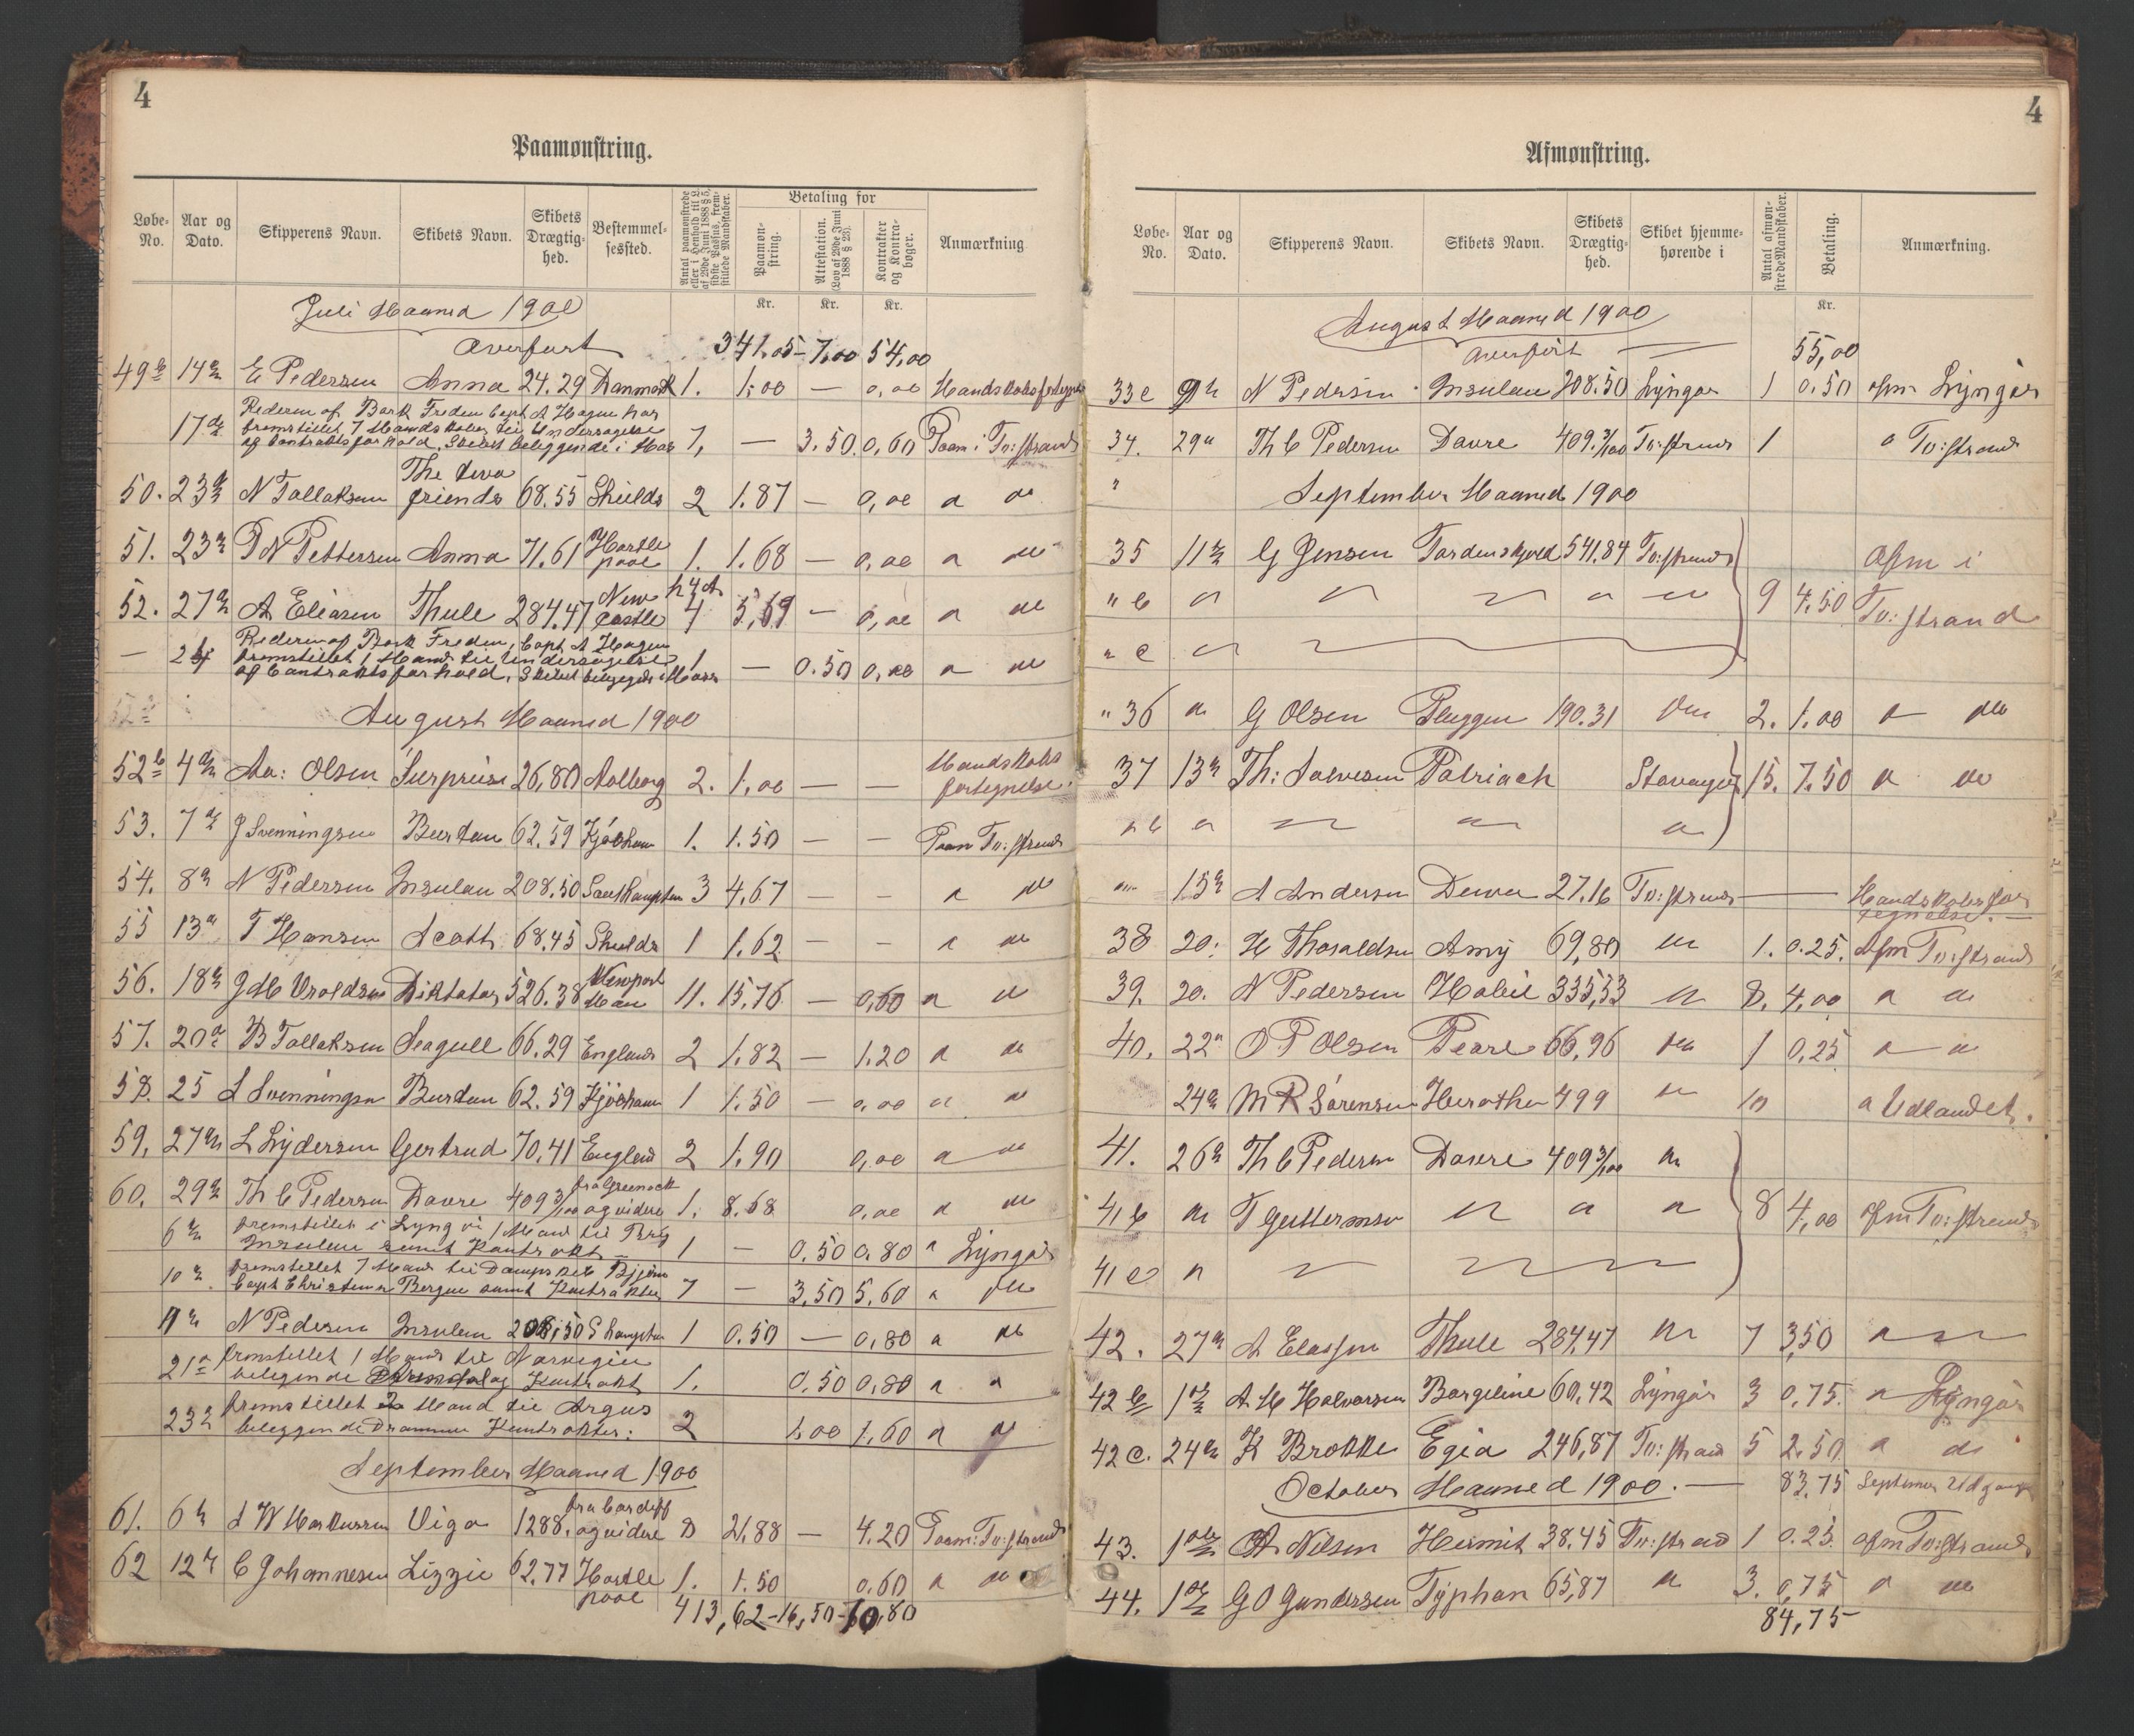 4
Paamønstring.
Løbe-No. Aar og Dato. Skipperens Navn. Skibets Navn. Skibets Drægtighed. Bestemmelsessted. Antal paamønstrede eller i Henhold til L. af 29de Juni 1888 § 5, sidste Passus, fremstillede Mandskaber. Betaling for Paamønstring. Attestation. (Lov af 29de Juni 1888 § 23). Kontrakter og Kontrabøger. Anmærkning
Kr. Kr. Kr.
Juli Maaned 1900
Overført 341.05 - 7,00 54,00
49 b 14 de E Pedersen Anna 24.29 Danmark 1. 1,00 — 0,00
17 de Rederen af Bark Freden Capt A Hagen har
fremstillet 7 Mandskaber til Undersøgelse
og Contraktsforhold. Skibet beliggende i Mar 7, — 3.50 0,60 Paam i Tv:strand
50. 23 de N Tallaksen The two friends 68.55 Shields 2 1.87 — 0,00 " do
51. 23 de P N Pettersen Anna 71.61 Hartlepool 1. 1.68 — 0,00 " do
52. 27 de A Eliasen Thule 284.47 New castle 4 5,69 — 0,00 " do
— Rederen af Bark Freden, Capt A Hagen
fremstillet 1 Mand til Undersøgelse
og Contraktsforhold, Skibet 1 — 0.50 0,00 " do
August Maaned 1900
52 b 4 de Aa: Olsen Surprise 26,80 Aalborg 2. 1,00 — — Mandskabsfortegnelse.
53. 7 de J Svenningsen Burdan 62.59 Kjøbhavn 1. 1.50 — — Paam Tv:strand
54. 8 de N Pedersen Insulan 208.50 Southampton 3 4,67 — — " do
55 13 de T Hansen Scott 68.45 Shields 1 1.62 — — " do
56. 18 de J M Vroldsen Diktator 526.38 Newport Mon 11. 15,76 — 0,60 " do
57. 20 de B Tallaksen Seagull 66.29 England 2 1.82 — 1.20 " do
58. 25 L Svenningsen Burdan 62.59 Kjøbhavn 1 1.50 — 0,00 " do
59. 27 de L Lydersen Gertrud 70.41 England 2 1.90 0,00 " do
60. 29 de Th C Pedersen Davre 409 3/100 fra Greenock og videre 1. 8.68 0,00 " do
6 de fremstillet i Lyngør 1 Mand til Brig
Insulan samt Kontrakt — 1 — 0.50 0.80 " Lyngør
10 de fremstillet 7 Mand til Dampskib Bjørn
Capt Christensen Bergen samt Kontrakter 7 — 3,50 5,60 " do
11 de N Pedersen Insulan 208,50 S hampton 1 0.50 — 0,80 " do
21 de fremstillet 1 Mand til Norvegia
beligende Arendal og Kontrakt 1. 0,50 0,80 " "
23 de fremstillet 2 Mand til Argus
beliggende Drammen Kontrakter: 2 1,00 1,60 " "
September Maaned 1900
61. 6 de A W Markussen Viga 1288. fra Cardiff og videre 8 21,88 — 4.20 Paam: Tv:strand
62 12 de C Johannesen Lizzie 62.77 Hartlepool 1. 1.50 0.60 " do
413,62 - 16,50 - 70,80
4
Afmønstring.
Løbe-No. Aar og Dato. Skipperens Navn. Skibets Navn. Skibets Drægtighed. Skibet hjemmehørende i Antal afmønstrede Mandskaber. Betaling. Anmærkning.
Kr.
August Maaned 1900
Overført 55,00
33 c 9 de N Pedersen Insulan 208.50 Lyngør 1 0.50 afm Lyngør
34. 29 de Th C Pedersen Davre 409.3/100 Tv:strand 1 " Tv:strand
" September Maaned 1900
35 11 te G Jensen Tordenskjold 541.84 Tv:strand Afm i
" b " " " " " 9 4.50 Tv:strand
" c "
" 36 do G Olsen Pluggen 190.31 do 2. 1.00 " do
37 13 de Th: Salvesen Patriach Stavanger 15. 7.50 " do
" b " " " "
" 15 de A Andersen Dewa 27.16 Tv:strand — Mandskabsfortegnelse. —
38 20. H Thoraldsen Amy 69,80 do 1. 0.25. Afm Tv:strand
39. 20. N Pedersen Habil 335,53 do 8. 4,00 " do
40. 22 de O P Olsen Pearl 66,96 do 1 0,25 " "
24 de M R Sørensen 499 " 10 " Udlandet.
41. 26 de Th C Pedersen Davre 409 3/100 do
41 b do T Guttermsen " " " 8 4,00 afm Tv:strand
41 c "
42. 27 de A Eliassen Thule 284,47 do 7 3,50 "
42 b 1 ste A M Halvorsen Bargeline 60,42 Lyngør 3 0,75. " Lyngør
42 c. 24 de K Brokke Egia 246,87 Tv:strand 5 2.50. " do
October Maaned 1900. — 83,75 September Udgang
43. 1 ste A Nilsen Hermit 38.45 Tv:strand 1 0.25. afm Tv:strand
44. 1 ste G O Gundersen Typhan 65,87 " 3. 0,75 " do
84,75